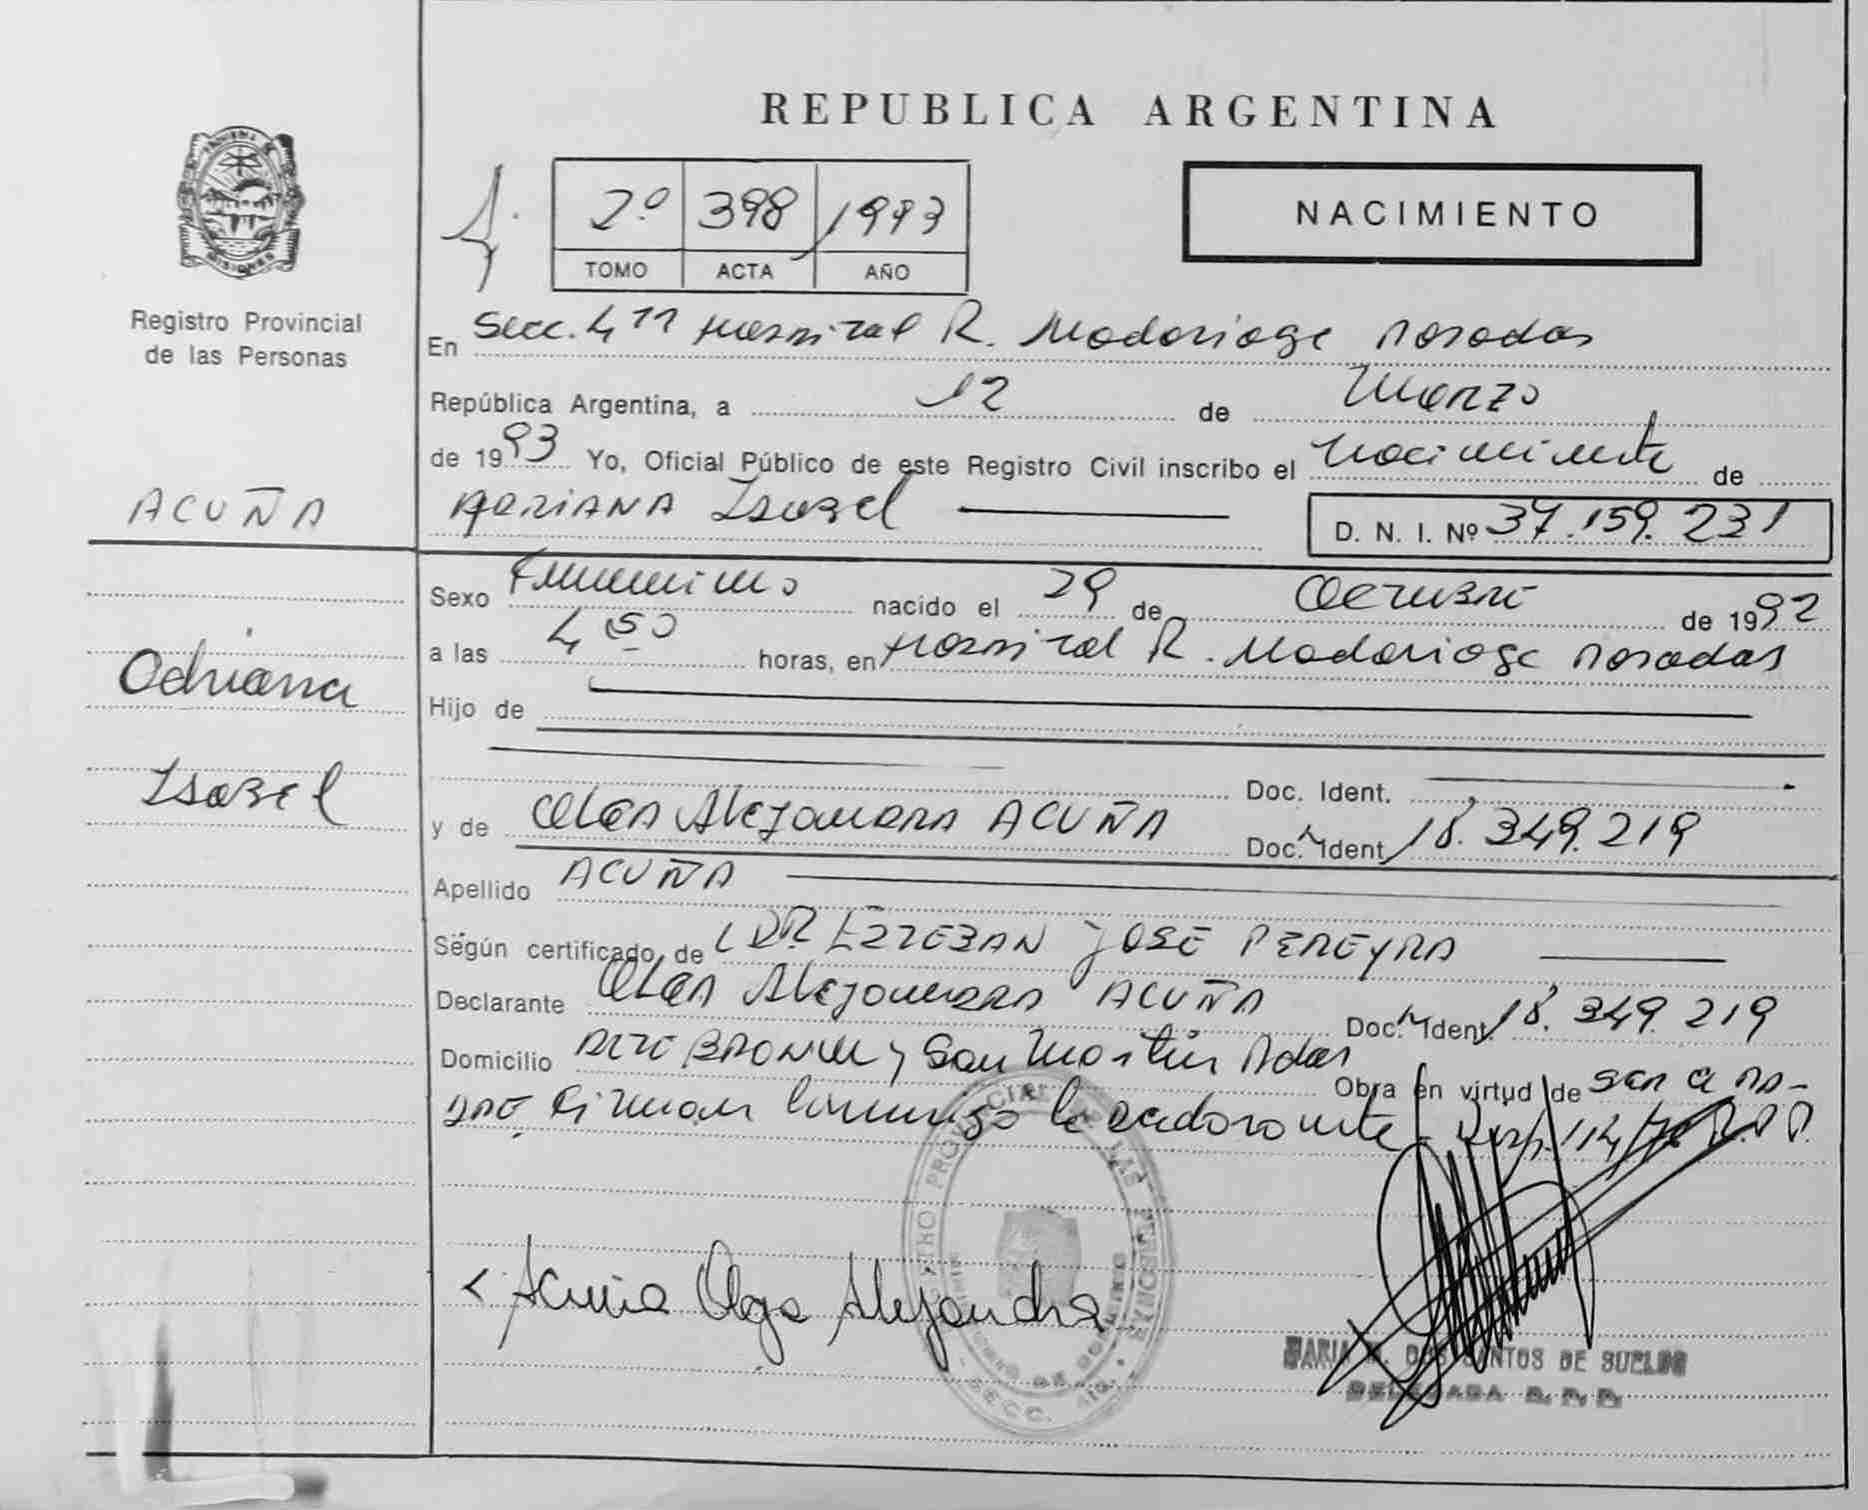 REPUBLICA ARGENTINA
2º 398 1993
TOMO ACTA AÑO
NACIMIENTO
MISIONES
Registro Provincial
de las Personas
En Secc. 4ta Hospital R. Madariaga Posadas
República Argentina, a 12 de Marzo
de 1993 Yo, Oficial Público de este Registro Civil inscribo el Nacimiento de
ACUÑA
ADRIANA Isabel
D. N. I. Nº 37.159.231
Sexo Femenino nacido el 29 de Octubre de 1992
a las 4 50 horas, en Hospital R. Madariaga Posadas
Adriana
Isabel
Hijo de
Doc. Ident.
y de Olga Alejandra ACUÑA Doc. Ident 18.349.219
Apellido ACUÑA
Según certificado de DR ESTEBAN JOSE PEREYRA
Declarante Olga Alejandra ACUÑA Doc. Ident. 18.349.219
Domicilio Alte BROWN y San Martín Pdas
Obra en virtud de ser la ma-
dre Firman conmigo la declarante
REGISTRO PROVINCIAL DE LAS PERSONAS
Acuña Olga Alejandra
MARIA DOS SANTOS DE SUELDO
DELEGADA R. P. P.